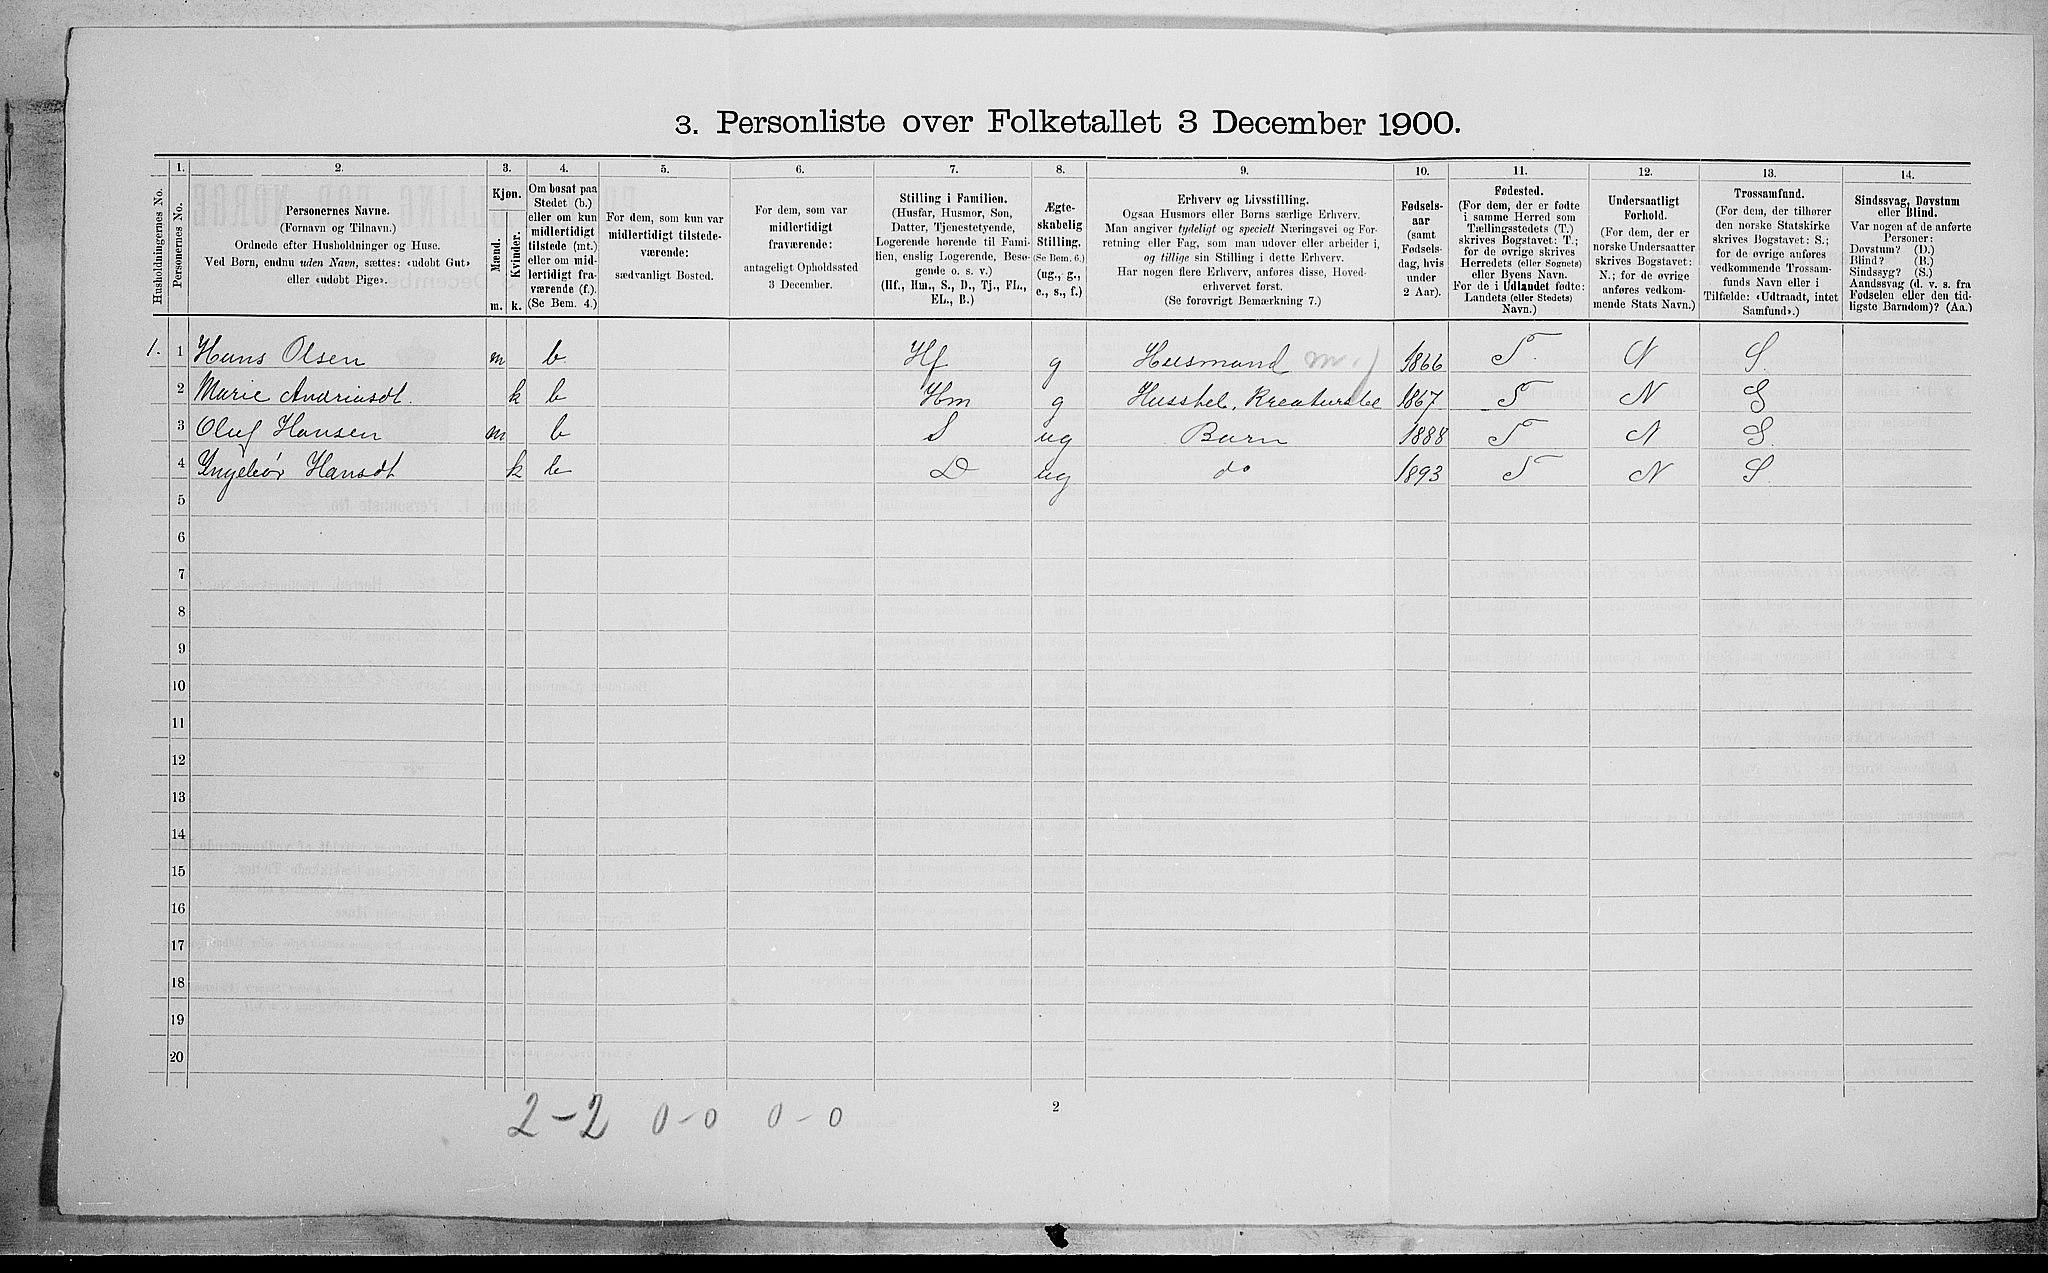 3. Personliste over Folketallet 3 December 1900.
1. 2. 3. 4. 5. 6. 7. 8. 9. 10. 11. 12. 13. 14.
Husholdningernes No.
Personernes No.
Personernes Navne.
(Fornavn og Tilnavn.)
Ordnede efter Husholdninger og Huse.
Ved Børn, endnu uden Navn, sættes: «udøbt Gut»
eller «udøbt Pige».
Kjøn.
Mænd.
Kvinder.
m. k.
Om bosat paa
Stedet (b.)
eller om kun
midlertidigt
tilstede (mt.)
eller om mid-
lertidigt fra-
værende (f.).
(Se Bem. 4.)
For dem, som kun var
midlertidigt tilstede-
værende:
sædvanligt Bosted.
For dem, som var
midlertidigt
fraværende:
antageligt Opholdssted
3 December.
Stilling i Familien.
(Husfar, Husmor, Søn,
Datter, Tjenestetyende,
Logerende hørende til Fami-
lien, enslig Logerende, Besø-
gende o. s. v.)
(Hf., Hm., S., D., Tj., FL.,
EL., B.)
Ægte-
skabelig
Stilling.
(Se Bem. 6.)
(ug., g.,
e., s., f.)
Erhverv og Livsstilling.
Ogsaa Husmors eller Børns særlige Erhverv.
Man angiver tydeligt og specielt Næringsvei og For-
retning eller Fag, som man udøver eller arbeider i,
og tillige sin Stilling i dette Erhverv.
Har nogen flere Erhverv, anføres disse, Hoved-
erhvervet først.
(Se forøvrigt Bemærkning 7.)
Fødsels-
aar
(samt
Fødsels-
dag, hvis
under
2 Aar).
Fødested.
(For dem, der er fødte
i samme Herred som
Tællingsstedets (T.)
skrives Bogstavet: T.;
for de øvrige skrives
Herredets (eller Sognets)
eller Byens Navn.
For de i Udlandet fødte:
Landets (eller Stedets)
Navn.)
Undersaatligt
Forhold.
(For dem, der er
norske Undersaatter
skrives Bogstavet:
N.; for de øvrige
anføres vedkom-
mende Stats Navn.)
Trossamfund.
(For dem, der tilhører
den norske Statskirke
skrives Bogstavet: S.;
for de øvrige anføres
vedkommende Trossam-
funds Navn eller i
Tilfælde: «Udtraadt, intet
Samfund».)
Sindssvag, Døvstum
eller Blind.
Var nogen af de anførte
Personer:
Døvstum? (D.)
Blind? (B.)
Sindssyg? (S.)
Aandssvag (d. v. s. fra
Fødselen eller den tid-
ligste Barndom)? (Aa.)
1. 1 Hans Olsen m b Hf g Husmand m. j 1866 T. N S.
2 Marie Andriasdt. k b Hm g Husstel, Kreaturstel 1867 T N S
3 Oluf Hansen m b S ug Barn 1888 T N S.
4 Ingebor Hansdt k b D ug do 1893 T N S.
5
6
7
8
9
10
11
12
13
14
15
16
17
18
19
20
2-2 0-0 0-0
2